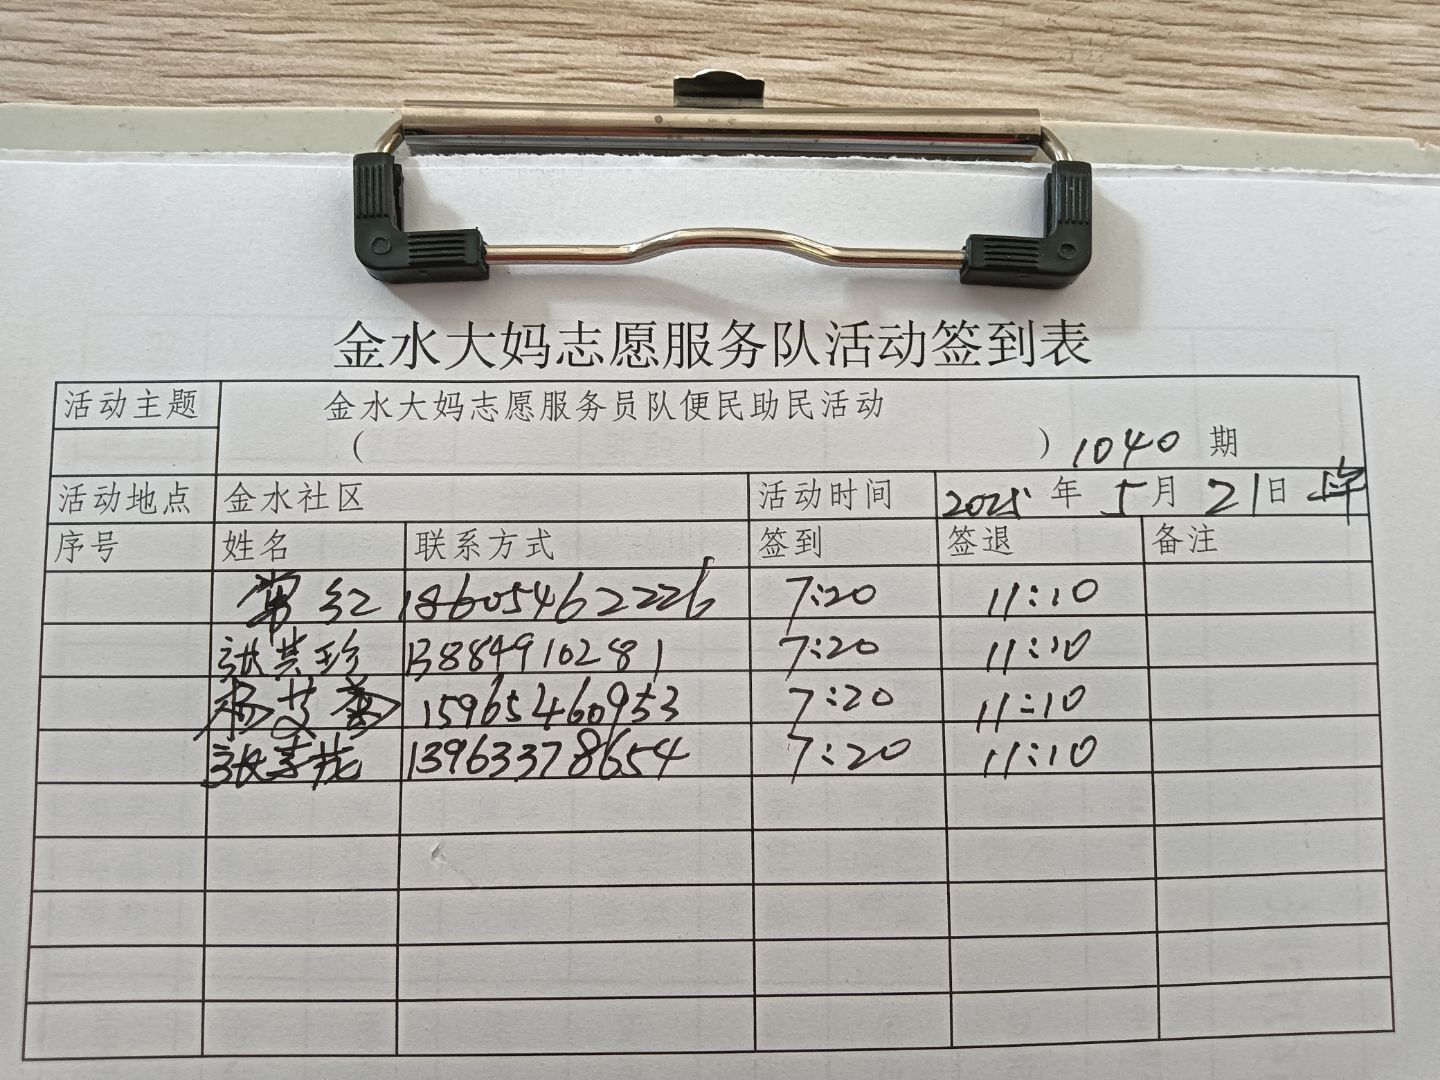 金水大妈志愿服务队活动签到表
活动主题 金水大妈志愿服务员队便民助民活动
( ) 1040 期
活动地点 金水社区 活动时间 2025 年 5 月 21 日 上午
序号 姓名 联系方式 签到 签退 备注
常红 18605462226 7:20 11:10
张芸珍 13884910281 7:20 11:10
杨艾 15965460953 7:20 11:10
张 13963378654 7:20 11:10